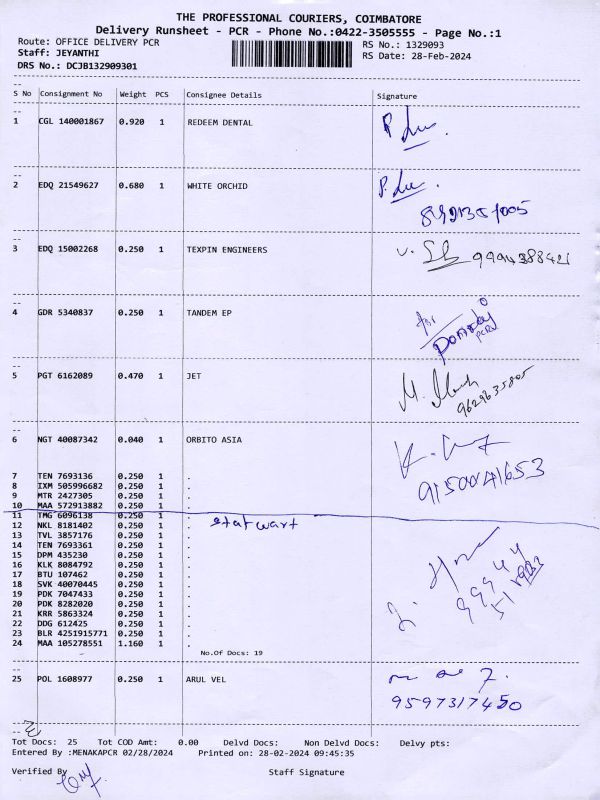 THE PROFESSIONAL COURIERS, COIMBATORE
Delivery Runsheet - PCR - Phone No.:0422-3505555 - Page No.:1
Route: OFFICE DELIVERY PCR RS No.: 1329093
Staff: JEYANTHI RS Date: 28-Feb-2024
DRS No.: DCJB132909301
S No Consignment No Weight PCS Consignee Details Signature
1 CGL 140001867 0.920 1 REDEEM DENTAL
2 EDQ 21549627 0.680 1 WHITE ORCHID
3 EDQ 15002268 0.250 1 TEXPIN ENGINEERS
9994388421
4 GDR 5340837 0.250 1 TANDEM EP
5 PGT 6162089 0.470 1 JET
9629635805
6 NGT 40087342 0.040 1 ORBITO ASIA
9150041653
7 TEN 7693136 0.250 1 .
8 IXM 505996682 0.250 1 .
9 MTR 2427305 0.250 1 .
10 MAA 572913882 0.250 1 .
11 TMG 6096138 0.250 1 .
12 NKL 8181402 0.250 1 .
13 TVL 3857176 0.250 1 .
14 TEN 7693361 0.250 1 .
15 DPM 435230 0.250 1 .
16 KLK 8084792 0.250 1 .
17 BTU 107462 0.250 1 .
18 SVK 40070445 0.250 1 .
19 PDK 7047433 0.250 1 .
20 PDK 8282020 0.250 1 .
21 KRR 5863324 0.250 1 .
22 DDG 612425 0.250 1 .
23 BLR 4251915771 0.250 1 .
24 MAA 105278551 1.160 1 .
No.Of Docs: 19
25 POL 1608977 0.250 1 ARUL VEL
9597317450
Tot Docs: 25 Tot COD Amt: 0.00 Delvd Docs: Non Delvd Docs: Delvy pts:
Entered By :MENAKAPCR 02/28/2024 Printed on: 28-02-2024 09:45:35
Verified By Staff Signature